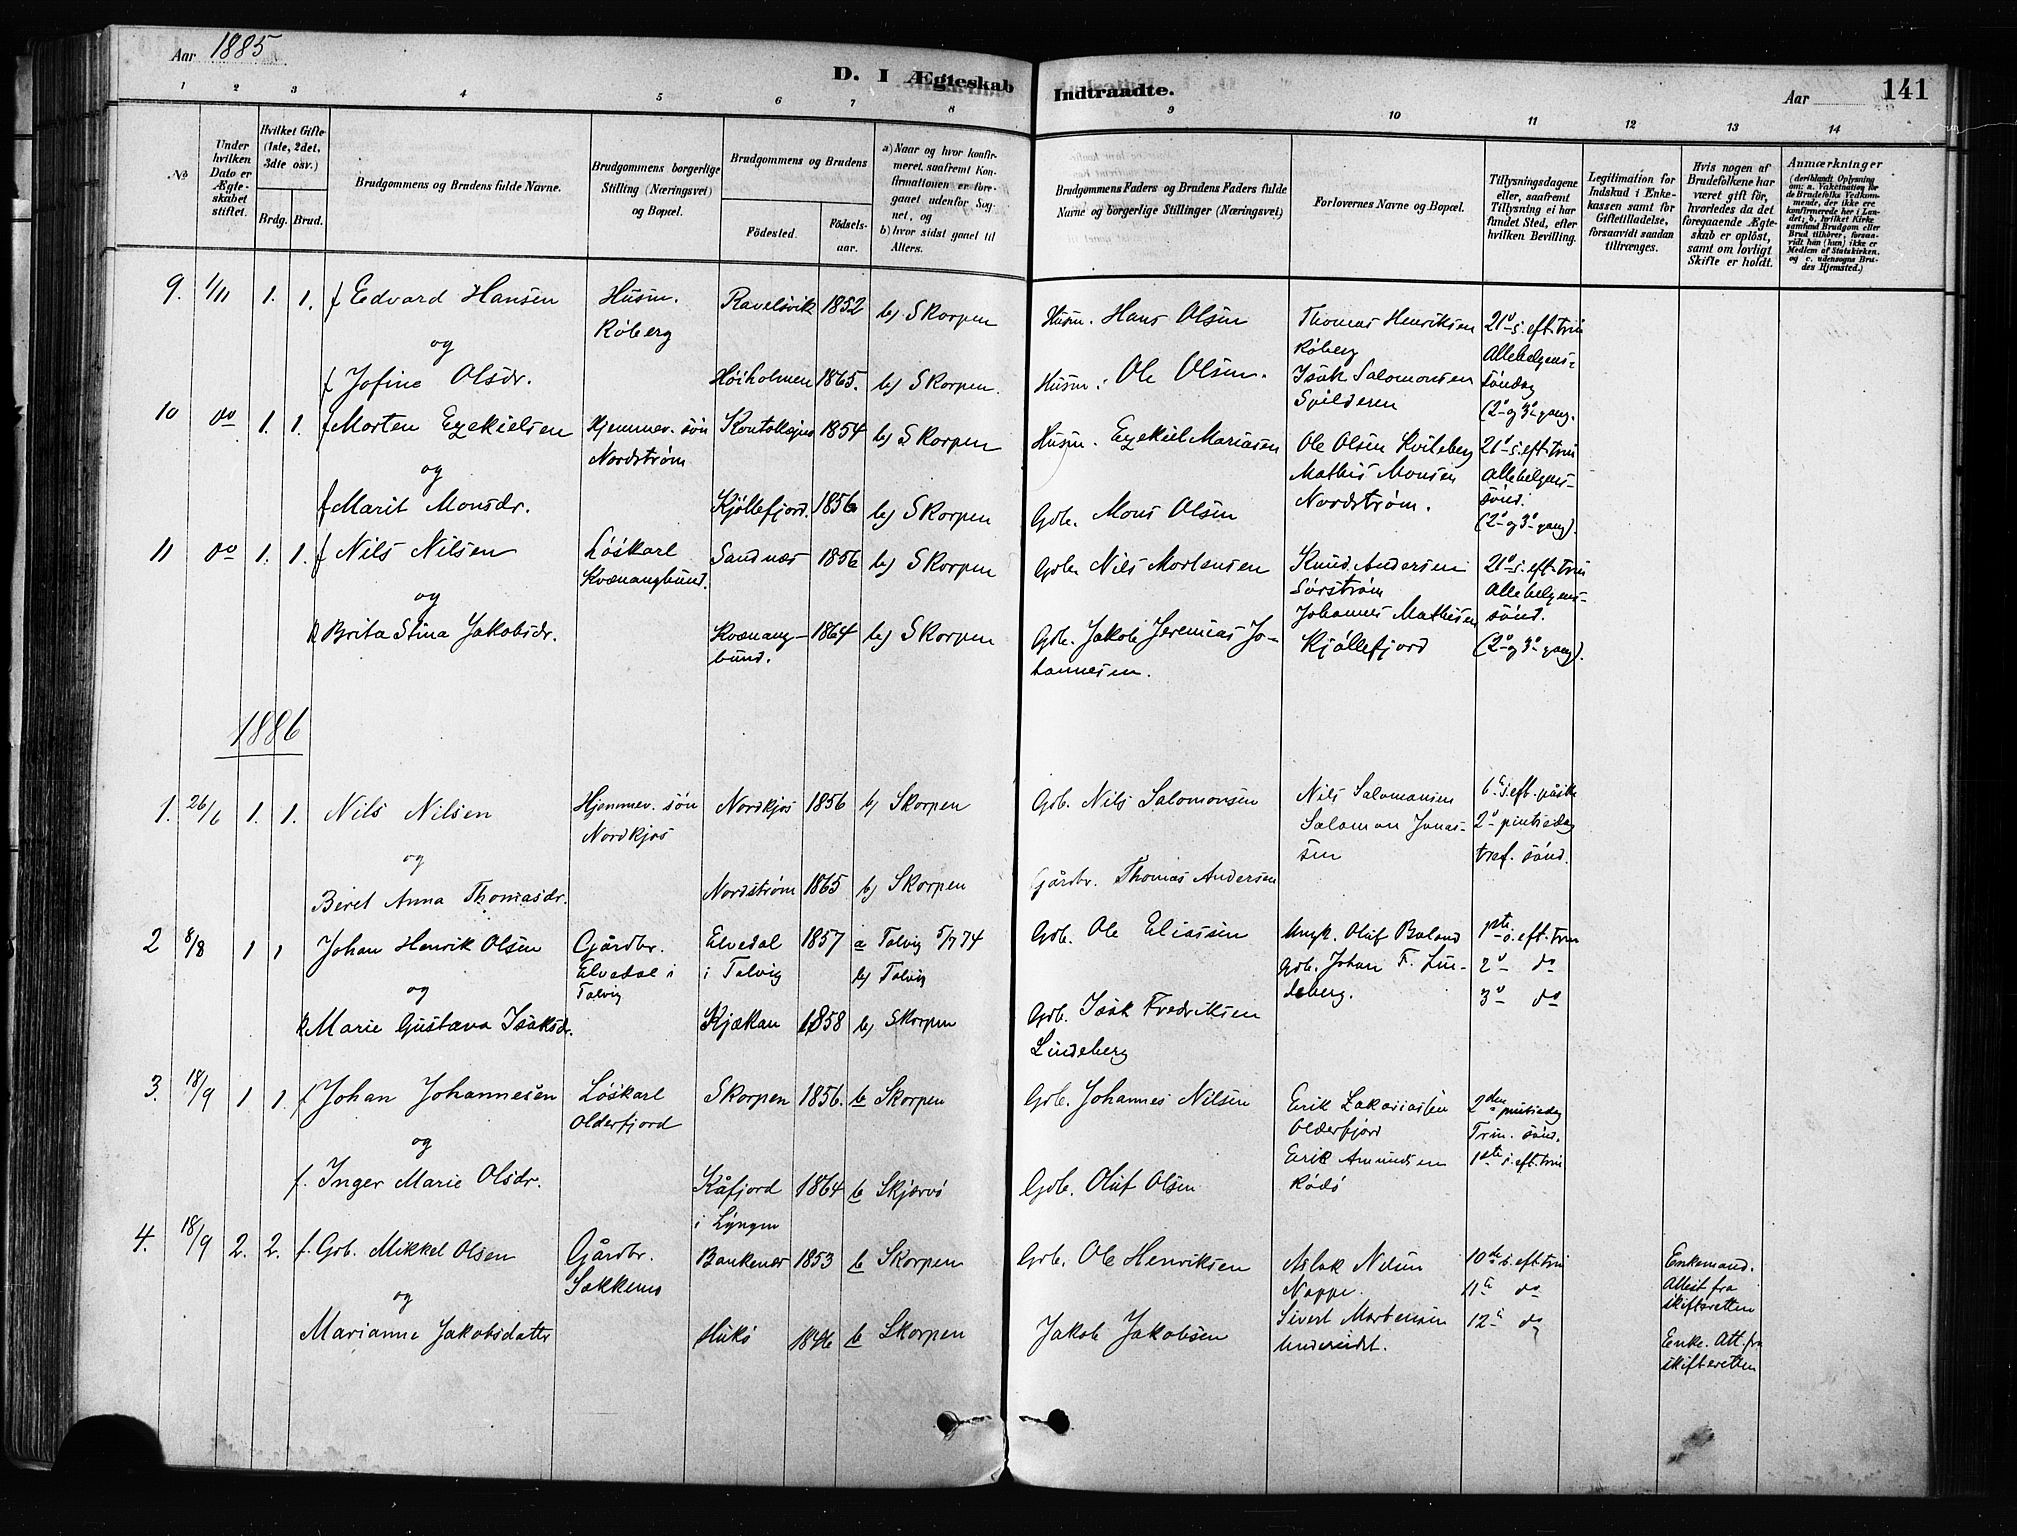 Aar 1885
D. I Ægteskab Indtraadte.
Aar
141
1 2 3 4 5 6 7 8 9 10 11 12 13 14
No
Under hvilken Dato er Ægteskabet stiftet.
Hvilket Gifte (1ste, 2det, 3die osv.)
Brdg. Brud.
Brudgommens og Brudens fulde Navne.
Brudgommens borgerlige Stilling (Næringsvei) og Bopæl.
Brudgommens og Brudens
Födested.
Födselsaar.
a) Naar og hvor konfirmeret, saafremt Konfirmationen er foregaaet udenfor Sognet, og
b) hvor sidst gaaet til Alters.
Brudgommens Faders og Brudens Faders fulde Navne og borgerlige Stillinger (Næringsvei)
Forlovernes Navne og Bopæl.
Tillysningsdagene eller, saafremt Tillysning ei har fundet Sted, efter hvilken Bevilling.
Legitimation for Indskud i Enkekassen samt for Giftetilladelse, forsaavidt saadan tiltrænges.
Hvis nogen af Brudefolkene har været gift för, hvorledes da det foregaaende Ægteskab er oplöst, samt om lovligt Skifte er holdt.
Anmærkninger (deriblandt Oplysning om: a. Vakcination for de Brudefolks Vedkommende, der ikke ere konfirmerede her i Landet; b. hvilket Kirkesamfund Brudgom eller Brud tilhörer, forsaavidt han (hun) ikke er Medlem af Statskirken, og c. udensogns Brudes Hjemsted.)
9. 1/11 1. 1. f Edvard Hansen Husm. Røberg Ravelsvik 1852 b) Skorpen Husm. Hans Olsen Thomas Henriksen Røberg 21de s. eft. trin
og
f Jofine Olsdr. Høiholmen 1865. b) Skorpen. Husm. Ole Olsen. Isak Salomonsen Spilderen Allehelgens-søndag (2o og 3o gang.
10 do 1. 1. f Morten Ezekielsen Hjemmev. søn Nordstrøm 1854 b) Skorpen Husm. Ezekiel Mariasen Ole Olsen Kvileberg 21 s. eft. trin
og
f Marit Monsdr. Kjøllefjord. 1856 b) Skorpen Gdb. Mons Olsen Mathis Monsen Nordstrøm. Allehelgens-sønd. (2o og 3o gang).
11 do 1. 1. f Nils Nilsen Løskarl Kvænangbund. Sandnæs 1856 b) Skorpen Gdb. Nils Mortensen Knud Andersen Sørstrøm 21 s. eft. trin
og
k Brita Stina Jakobsdr. Kvænangbund. 1864 b) Skorpen Gdb. Jakob Jeremias Johannesen. Johannes Mathisen Kjøllefjord Allehelgens-sønd. (2o og 3o gang).
1886
1. 26/6 1. 1. Nils Nilsen Hjemmev. søn Nordkjos Nordkjos 1856 b) Skorpen Gdb. Nils Salomonsen Nils Salomonsen 6 s. eft. påske
og
Beret Anna Thomasdr. Nordstrøm 1865 b) Skorpen Gårdbr. Thomas Andersen Salomon Jonassen 2 pintsedag tref. sønd.
2 8/8 1 1 Johan Henrik Olsen Gårdbr. Elvedal i Talvig Elvedal i Talvig 1857 a Talvig 5/7 74 b) Talvig Gdb. Ole Eliassen Oluf Boland 1ste s. eft. trin
og
k Marie Gustava Isaksdr. Kjækan 1858 b) Skorpen Gdb. Isak Fredriksen Lindeberg Gdb. Johan F. Lindeberg. 2 do 3 do
3. 18/9 1 1. f Johan Johannesen Løskarl Olderfjord Skorpen 1856. b Skorpen Gdb. Johannes Nilsen Erik Zakariasen Olderfjord 2den pintsedag
og
f. Inger Marie Olsdr. Kåfjord i Lyngen 1864 b Skjervø Gdb. Oluf Olsen Erik Amundsen Rødø Trin. sønd. 1ste s. eft. trin
4. 18/9 2. 2. f. Gdb. Mikkel Olsen Gårdbr. Sakkemo Bankenes 1853 b Skorpen Gdb. Ole Henriksen Aslak Nilsen Noppe. 10de s. eft. trin 11 do Enkemand. Attest fra skifteretten
og
Marianne Jakobsdatter Hukø 1846 b Skorpen Jakob Jakobsen Sivert Mortensen 12 do Enke. Att. fra skifteretten